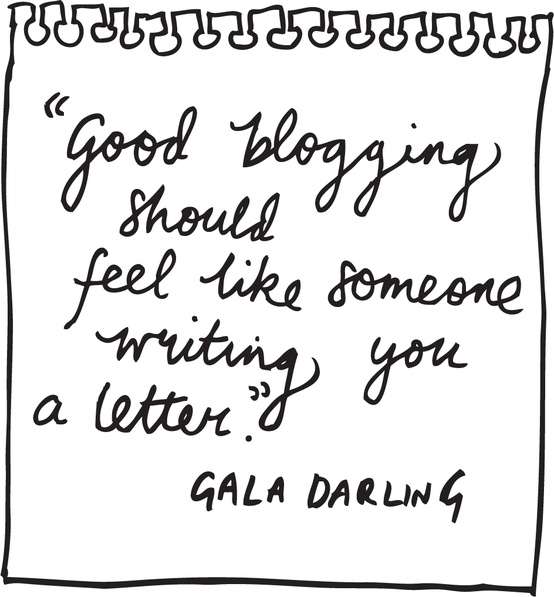 “Good blogging
should
feel like someone
writing you
a letter.”
GALA DARLING